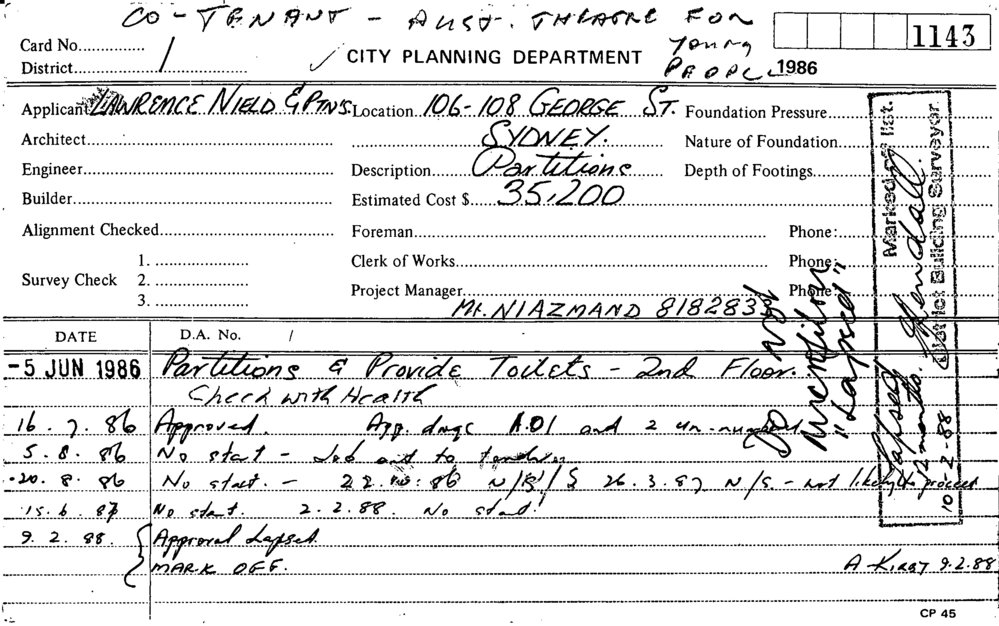 CO-TENANT - AUST. THEATRE FOR
YOUNG
PEOPLE
Card No.............. /
District..............
✓ CITY PLANNING DEPARTMENT
1143
1986
Applicant LAWRENCE NIELD & PTNS. Location 106-108 GEORGE ST. Foundation Pressure
Architect SYDNEY. Nature of Foundation
Engineer Description Partitions Depth of Footings
Builder Estimated Cost $ 35,200
Alignment Checked Foreman Phone:
1. Clerk of Works Phone:
Survey Check 2.
3. Project Manager Phone:
Mr. NIAZMAND 8182838
DATE D.A. No. /
-5 JUN 1986 Partitions & Provide Toilets - 2nd Floor.
Check with Health
16. 7. 86 Approved. App. dwgs A.01 and 2 un-numbered
5. 8. 86 No start - Job out to tender
20. 8. 86 No start. - 22.10.86 N/S/ 26.3.87 N/S. - not likely to proceed
15.6.87 No start. 2.2.88. No start!
9. 2. 88. Approval Lapsed.
MARK OFF. A Kirby 9.2.88
DO Not
Microfilm
"Lapsed"
Marked off list.
District Building Surveyor
Lapsed
2 months.
10-2-88
CP 45